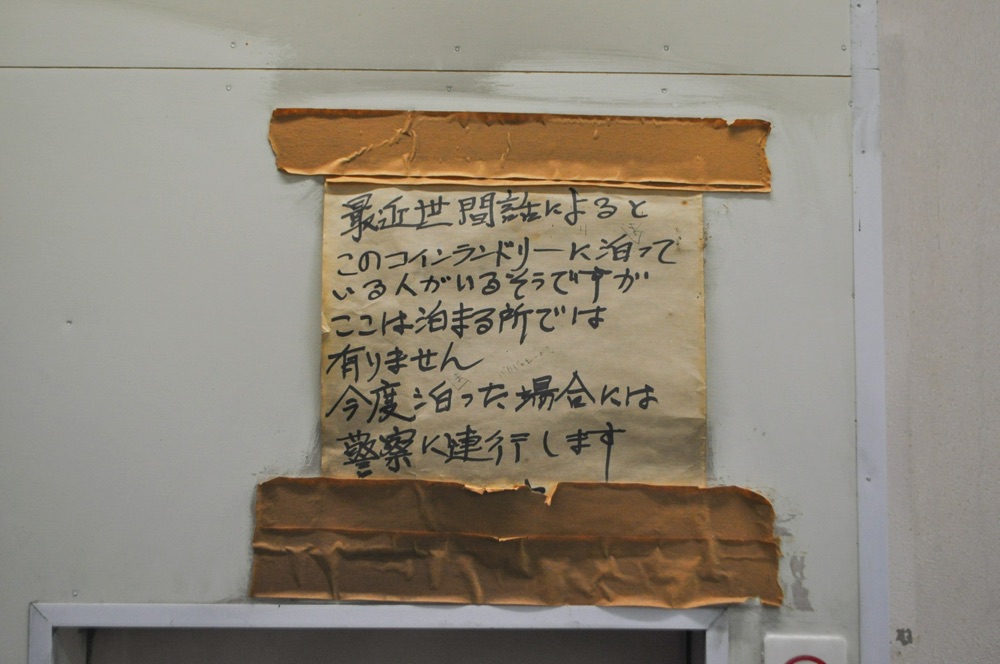 最近世間話によると
このコインランドリーに泊って
いる人がいるそうですが
ここは泊まる所では
有りません
今度泊った場合には
警察に連行します